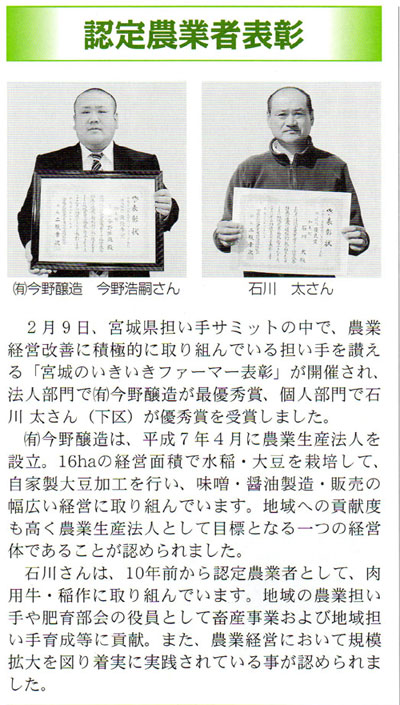 認定農業者表彰
表彰状
表彰状
㈲今野醸造　今野浩嗣さん
石川　太さん
　２月９日、宮城県担い手サミットの中で、農業
経営改善に積極的に取り組んでいる担い手を讃え
る「宮城のいきいきファーマー表彰」が開催され、
法人部門で㈲今野醸造が最優秀賞、個人部門で石
川 太さん（下区）が優秀賞を受賞しました。
　㈲今野醸造は、平成７年４月に農業生産法人を
設立。16haの経営面積で水稲・大豆を栽培して、
自家製大豆加工を行い、味噌・醤油製造・販売の
幅広い経営に取り組んでいます。地域への貢献度
も高く農業生産法人として目標となる一つの経営
体であることが認められました。
　石川さんは、10年前から認定農業者として、肉
用牛・稲作に取り組んでいます。地域の農業担い
手や肥育部会の役員として畜産事業および地域担
い手育成等に貢献。また、農業経営において規模
拡大を図り着実に実践されている事が認められま
した。